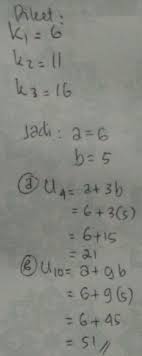 Diket:
k₁ = 6
k₂ = 11
k₃ = 16
Jadi: a = 6
b = 5
ⓐ U₄ = a + 3b
= 6 + 3(5)
= 6 + 15
= 21
ⓑ U₁₀ = a + 9b
= 6 + 9(5)
= 6 + 45
= 51 //